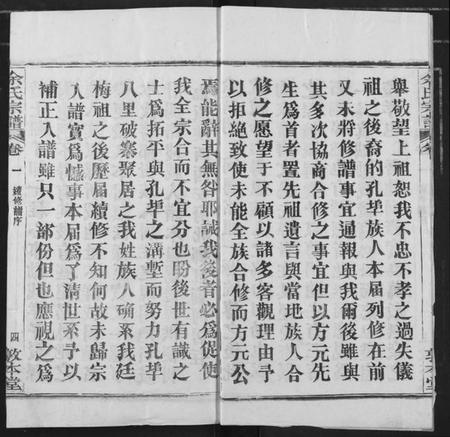 舉敬望上祖恕我不忠不孝之過失儀
祖之後裔的孔垏族人本届列修在前
又未將修譜事宜通報與我爾後雖與
其多次協商合修之事宜但以方元先
生爲首者置先祖遺言與當地族人合
修之愿望于不顧以諸多客觀理由予
以拒絕致使未能全族合修而方元公
焉能辭其無咎耶誠我後者必爲促使
我全宗合而不宜分也盼後世有識之
士爲拓平與孔垏之溝塹而努力孔垏
八里破寨聚居之我姓族人确系我廷
梅祖之後歷届續修不知何故未歸宗
入譜實爲憾事本届爲了清世系予以
補正入譜雖只一部份但也應視之爲
余氏宗譜 卷一 續修譜序 四 敦本堂